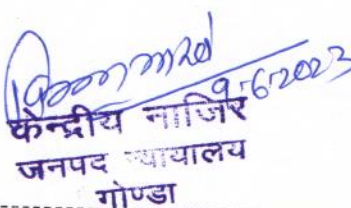 9-6-2023
केन्द्रीय नाजिर
जनपद न्यायालय
गोण्डा